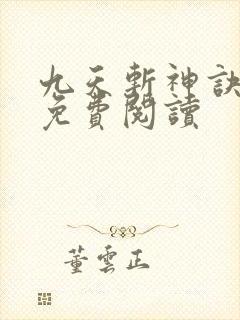 九天斬神訣
免費閱讀
董雲正